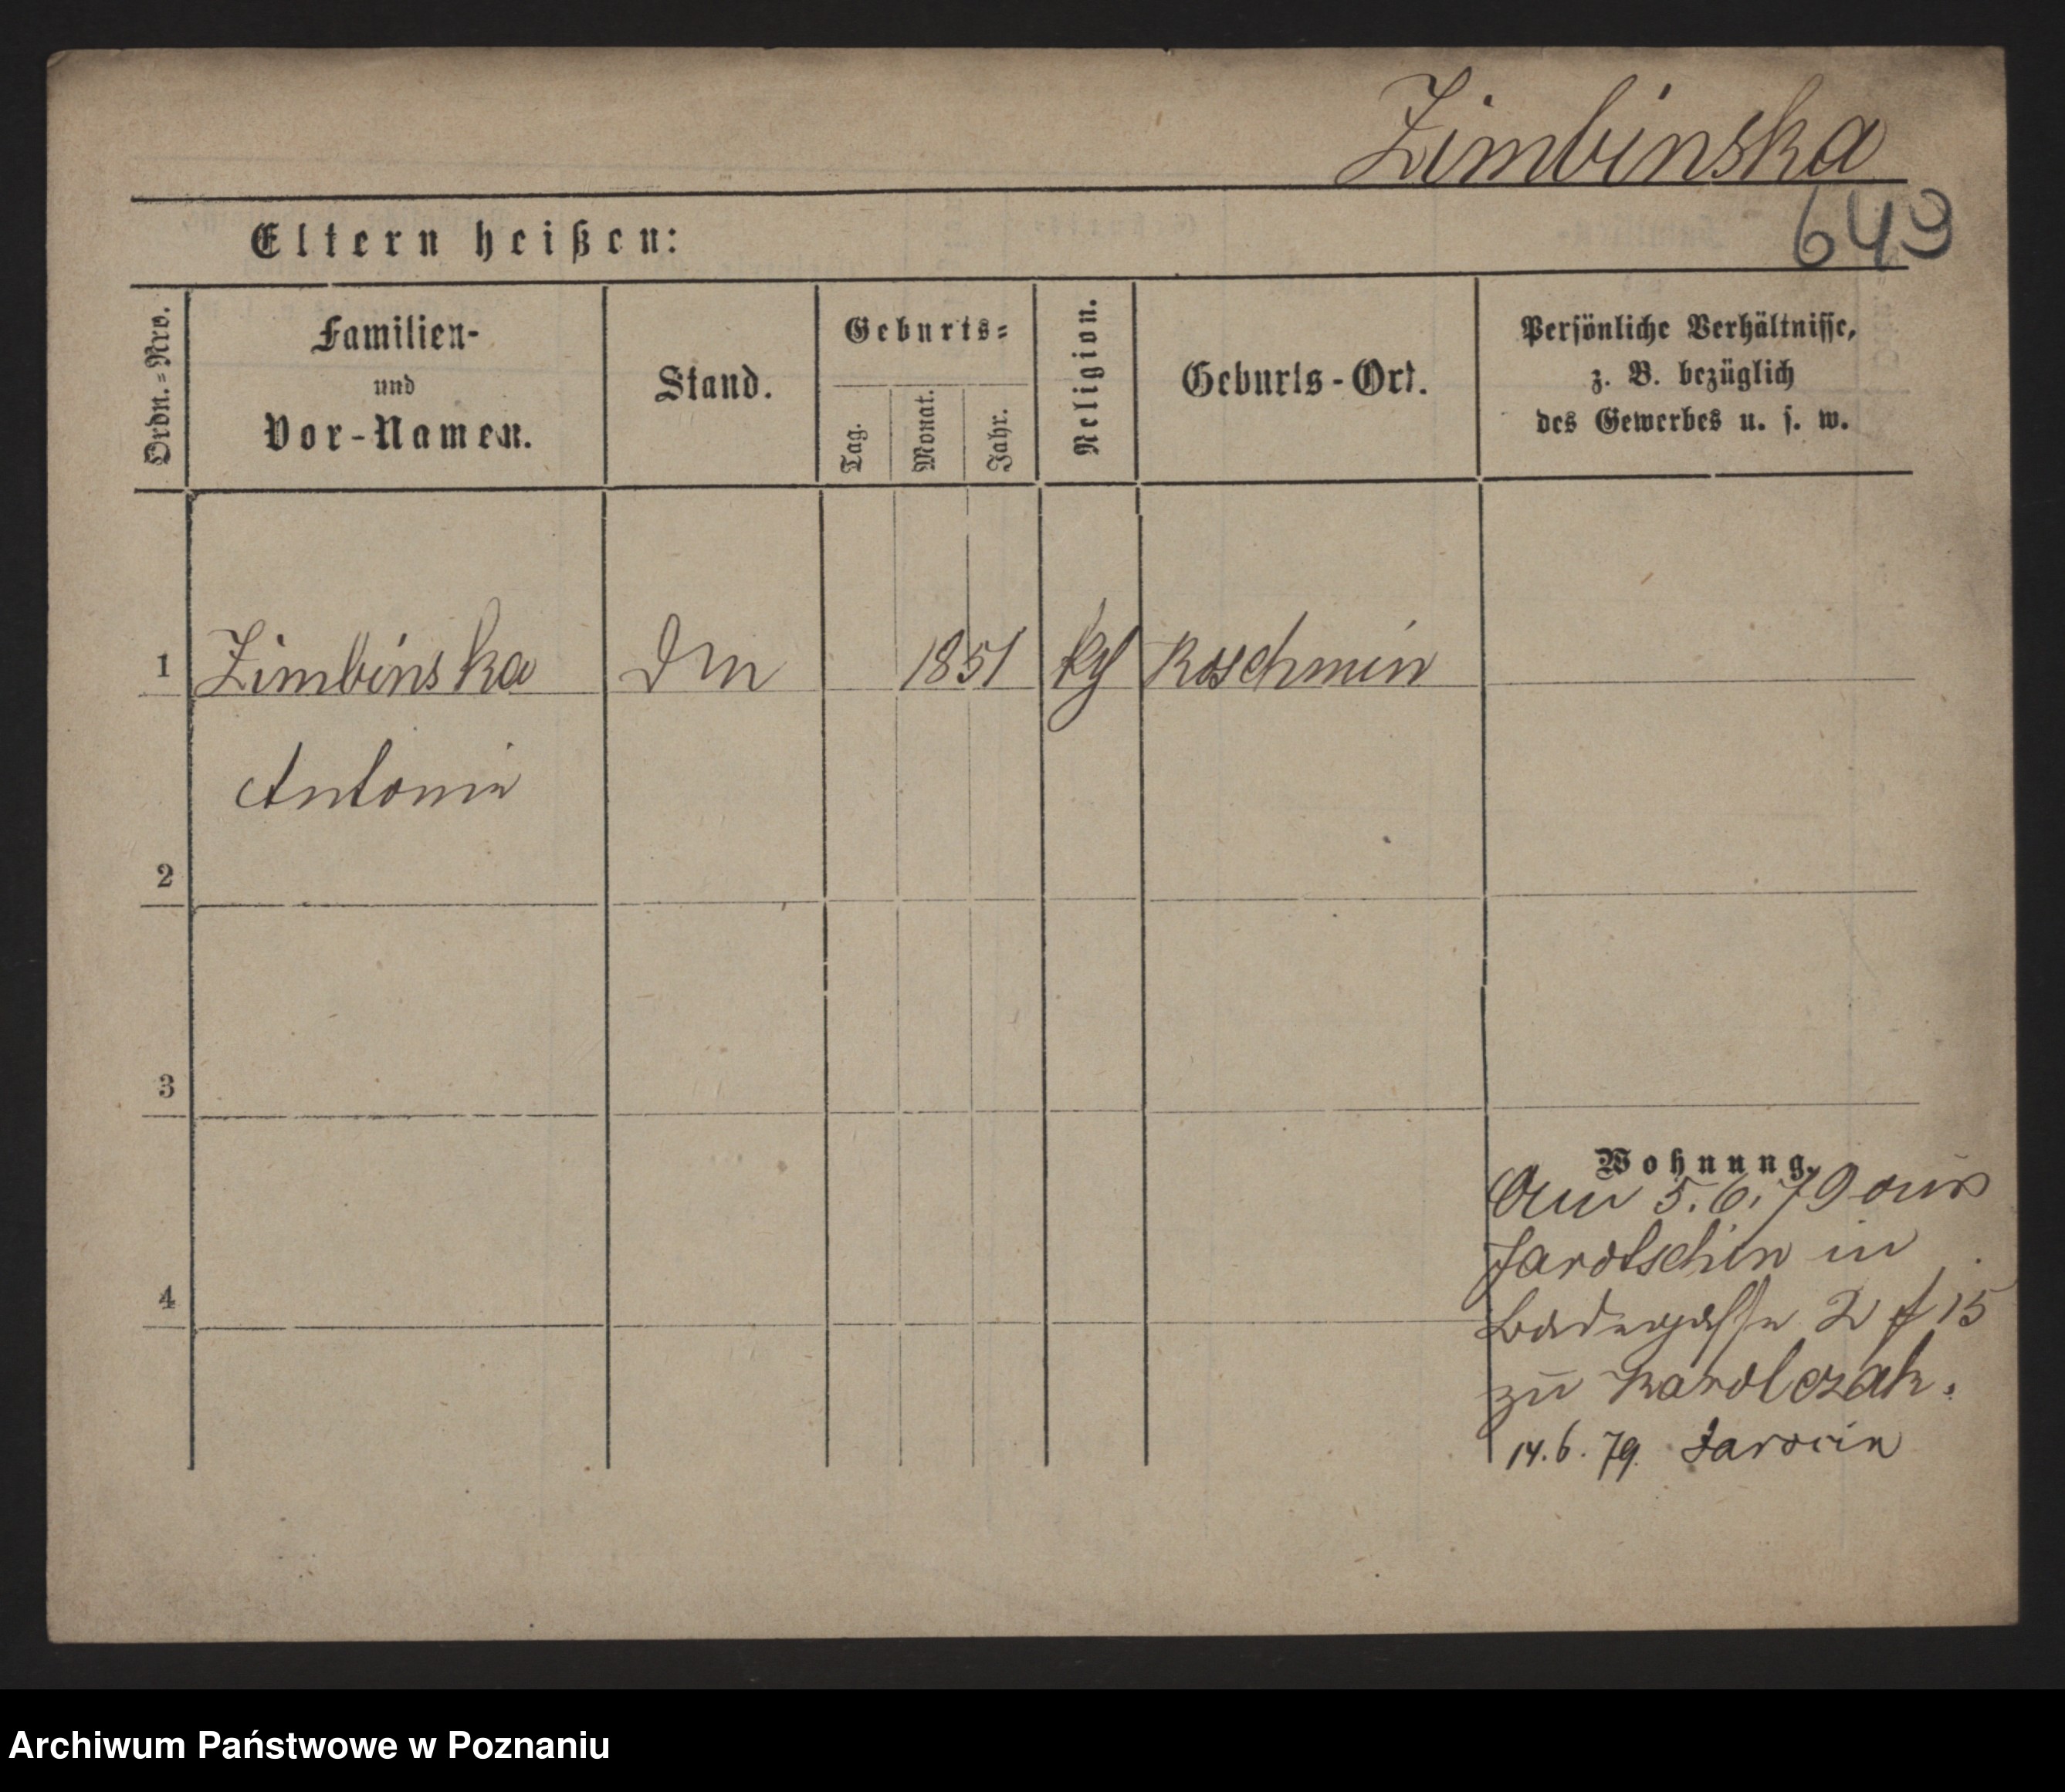 Zimbinska
649
Eltern heißen:
Ordn.=Nro.
Familien-
und
Vor-Namen.
Stand.
Geburts=
Tag.
Monat.
Jahr.
Religion.
Geburts-Ort.
Persönliche Verhältnisse,
z. B. bezüglich
des Gewerbes u. s. w.
1 Zimbinska Dm 1851 kth Koschmin
Antonie
2
3
4
Wohnung.
Am 5.6.79 aus
Jarotschin in
Badegasse 2 f 15
zu Karolczak.
14.6.79. Jarocin
Archiwum Państwowe w Poznaniu